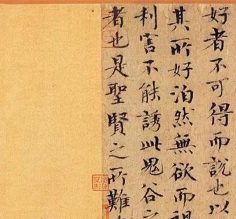 好者不可得而說也以
其所好泊然無欲而禍
利害不能誘此鬼谷之
者也是聖賢之所難